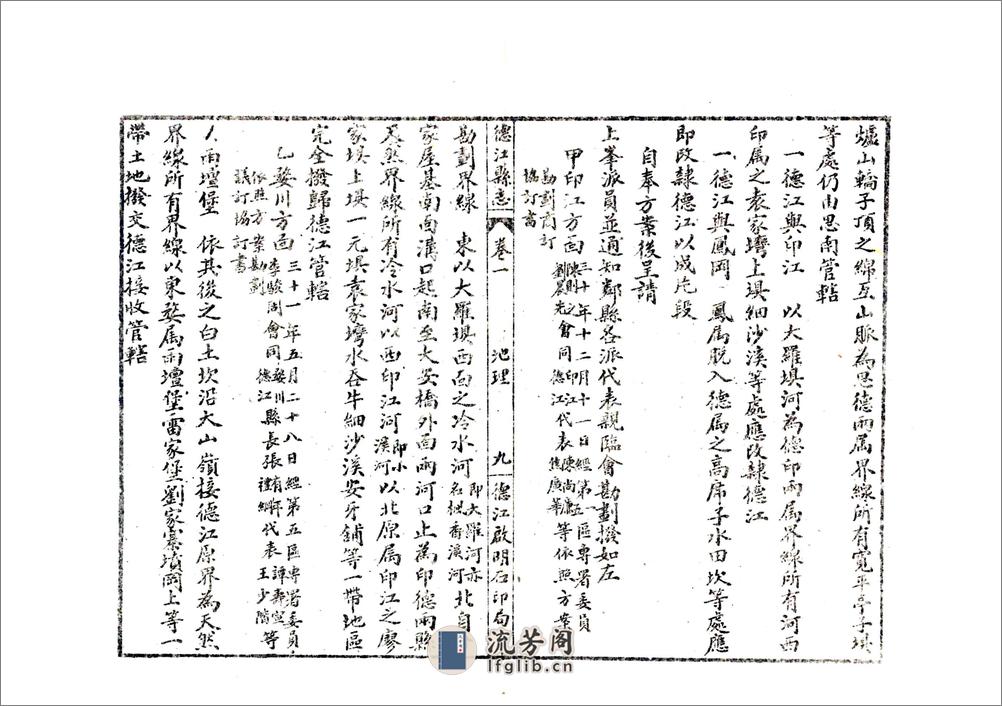 爐山輪子頂之綿亙山脈為思德兩屬界線所有寬平亭子垻
等處仍由思南管轄
一德江與印江　以大羅垻河為德印兩屬界線所有河西
印屬之袁家塆上垻細沙溪等處應改隸德江
一德江與鳳岡　鳳屬脫入德屬之高席子水田坎等處應
即改隸德江以成片段
自奉方案後呈請
上峯派員並通知鄰縣各派代表親臨會勘劃撥如左
甲印江方面 三十年十二月十一日經第五區專署委員
會同 印江 德江 代表 等依照方案
勘劃商訂
協訂書
德江縣志
卷一
地理
九
德江啟明石印局
勘劃界線　東以大羅垻西面之冷水河 即大羅河亦名桃香溪河 北自
家屋基南面溝口起南至大安橋外面兩河口止為印德兩縣
天然界線所有冷水河以西印江河 即小溪河 以北原屬印江之廖
家垻上垻一元垻袁家塆水吞牛細沙溪安牙鋪等一帶地區
完全撥歸德江管轄
乙婺川方面 三十一年五月二十八日經第五區專署委員
李駿周會同 婺川 德江 縣長張 代表 譚壽宣 王少隋 等
依照方案勘劃
議訂協訂書
人南壇堡　依其後之白土坎沿大山嶺接德江原界為天然
界線所有界線以東婺屬南壇堡雷家堡劉家寨墳岡上等一
帶土地撥交德江接收管轄
流芳阁
lfglib.cn